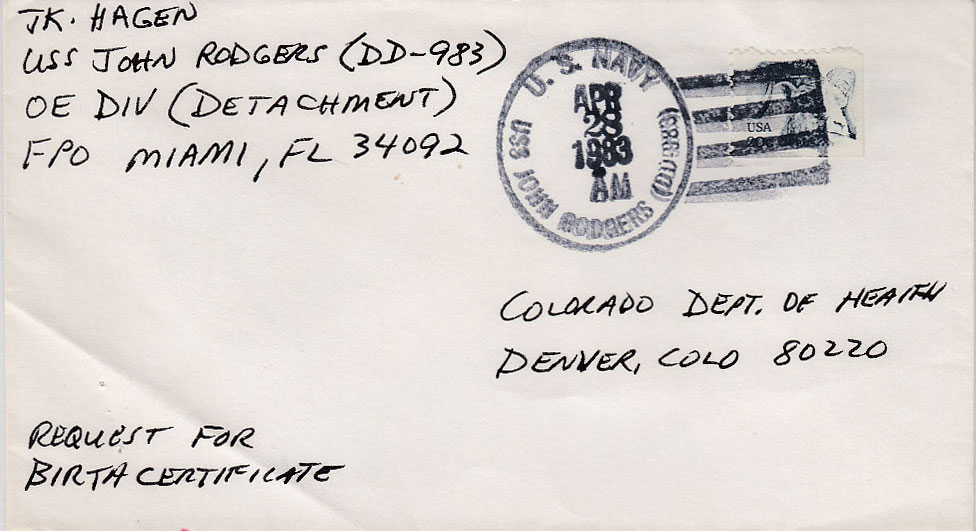 JK. HAGEN
USS JOHN RODGERS (DD-983)
OE DIV (DETACHMENT)
FPO MIAMI, FL 34092
U. S. NAVY
APR
28
1983
AM
USS JOHN RODGERS (DD983)
USA
20c
COLORADO DEPT. OF HEALTH
DENVER, COLO 80220
REQUEST FOR
BIRTH CERTIFICATE